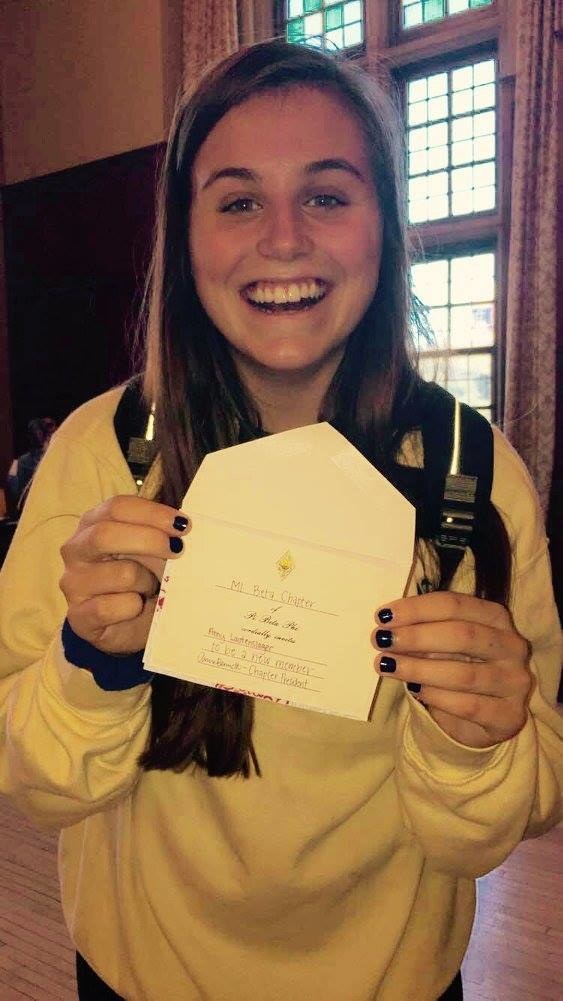 MI Beta Chapter
of
Pi Beta Phi
cordially invites
Amy Lautenslager
to be a new member
- Chapter President